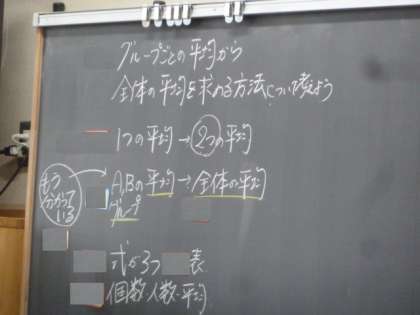 グループごとの平均から
全体の平均を求める方法について考えよう
1つの平均→2つの平均
もう
分かって
いる
A,Bの平均→全体の平均
グループ
式が3つ 表
個数・人数・平均